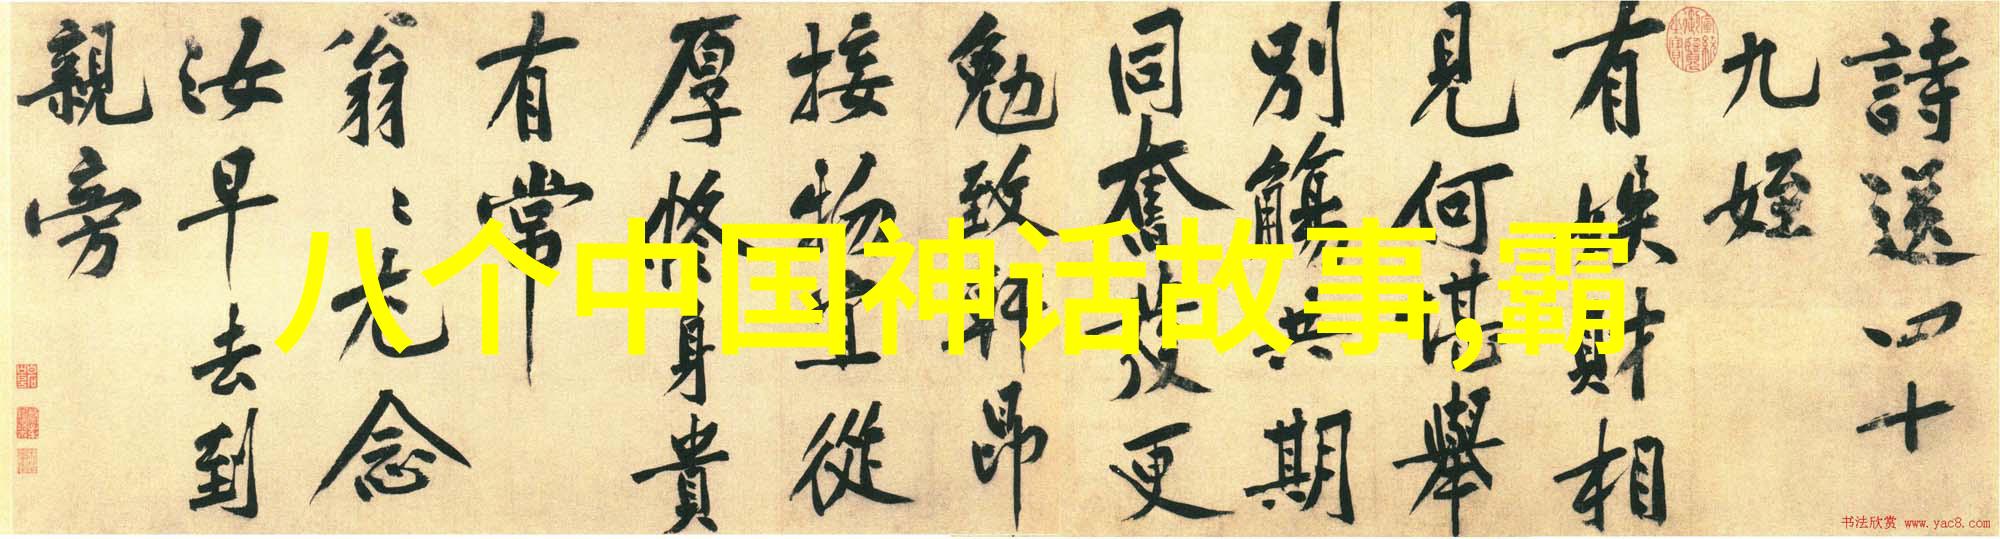 詩送四十
九姪
有財相
見何堪舉
別觴共期
同奮發更
勉致軒昂
接物宜從
厚修身貴
有常
翁〻老念
汝早去到
親旁
八个中国神话故事,霸
书法欣赏 www.yac8.com